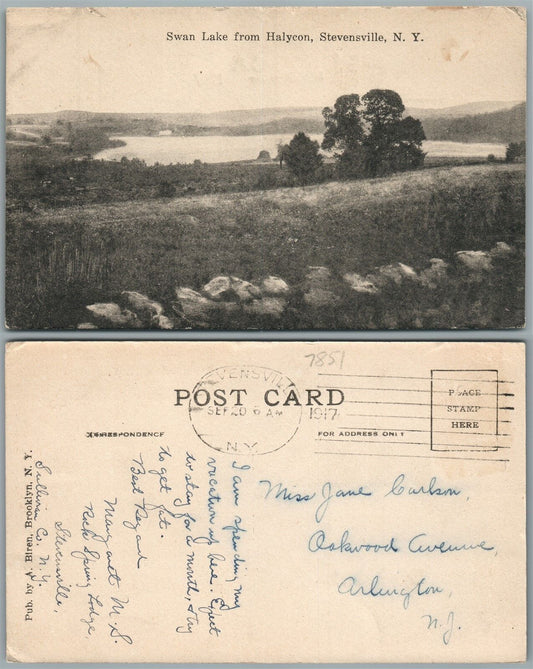 Swan Lake from Halycon, Stevensville, N. Y.
7851
STEVENSVILLE
SEP 20 6 AM
1917
N.Y.
POST CARD
PLACE
STAMP
HERE
CORRESPONDENCE
FOR ADDRESS ONLY
I am spending my
vacation up here. Expect
to stay for a month, & try
to get fat.
Best Regards
Margaret M. S.
Rick Spring Lodge,
Stevensville,
Sullivan Co. N.Y.
Miss Jane Carlson,
Oakwood Avenue,
Arlington,
N.J.
Pub. by A. Biren, Brooklyn, N. Y.